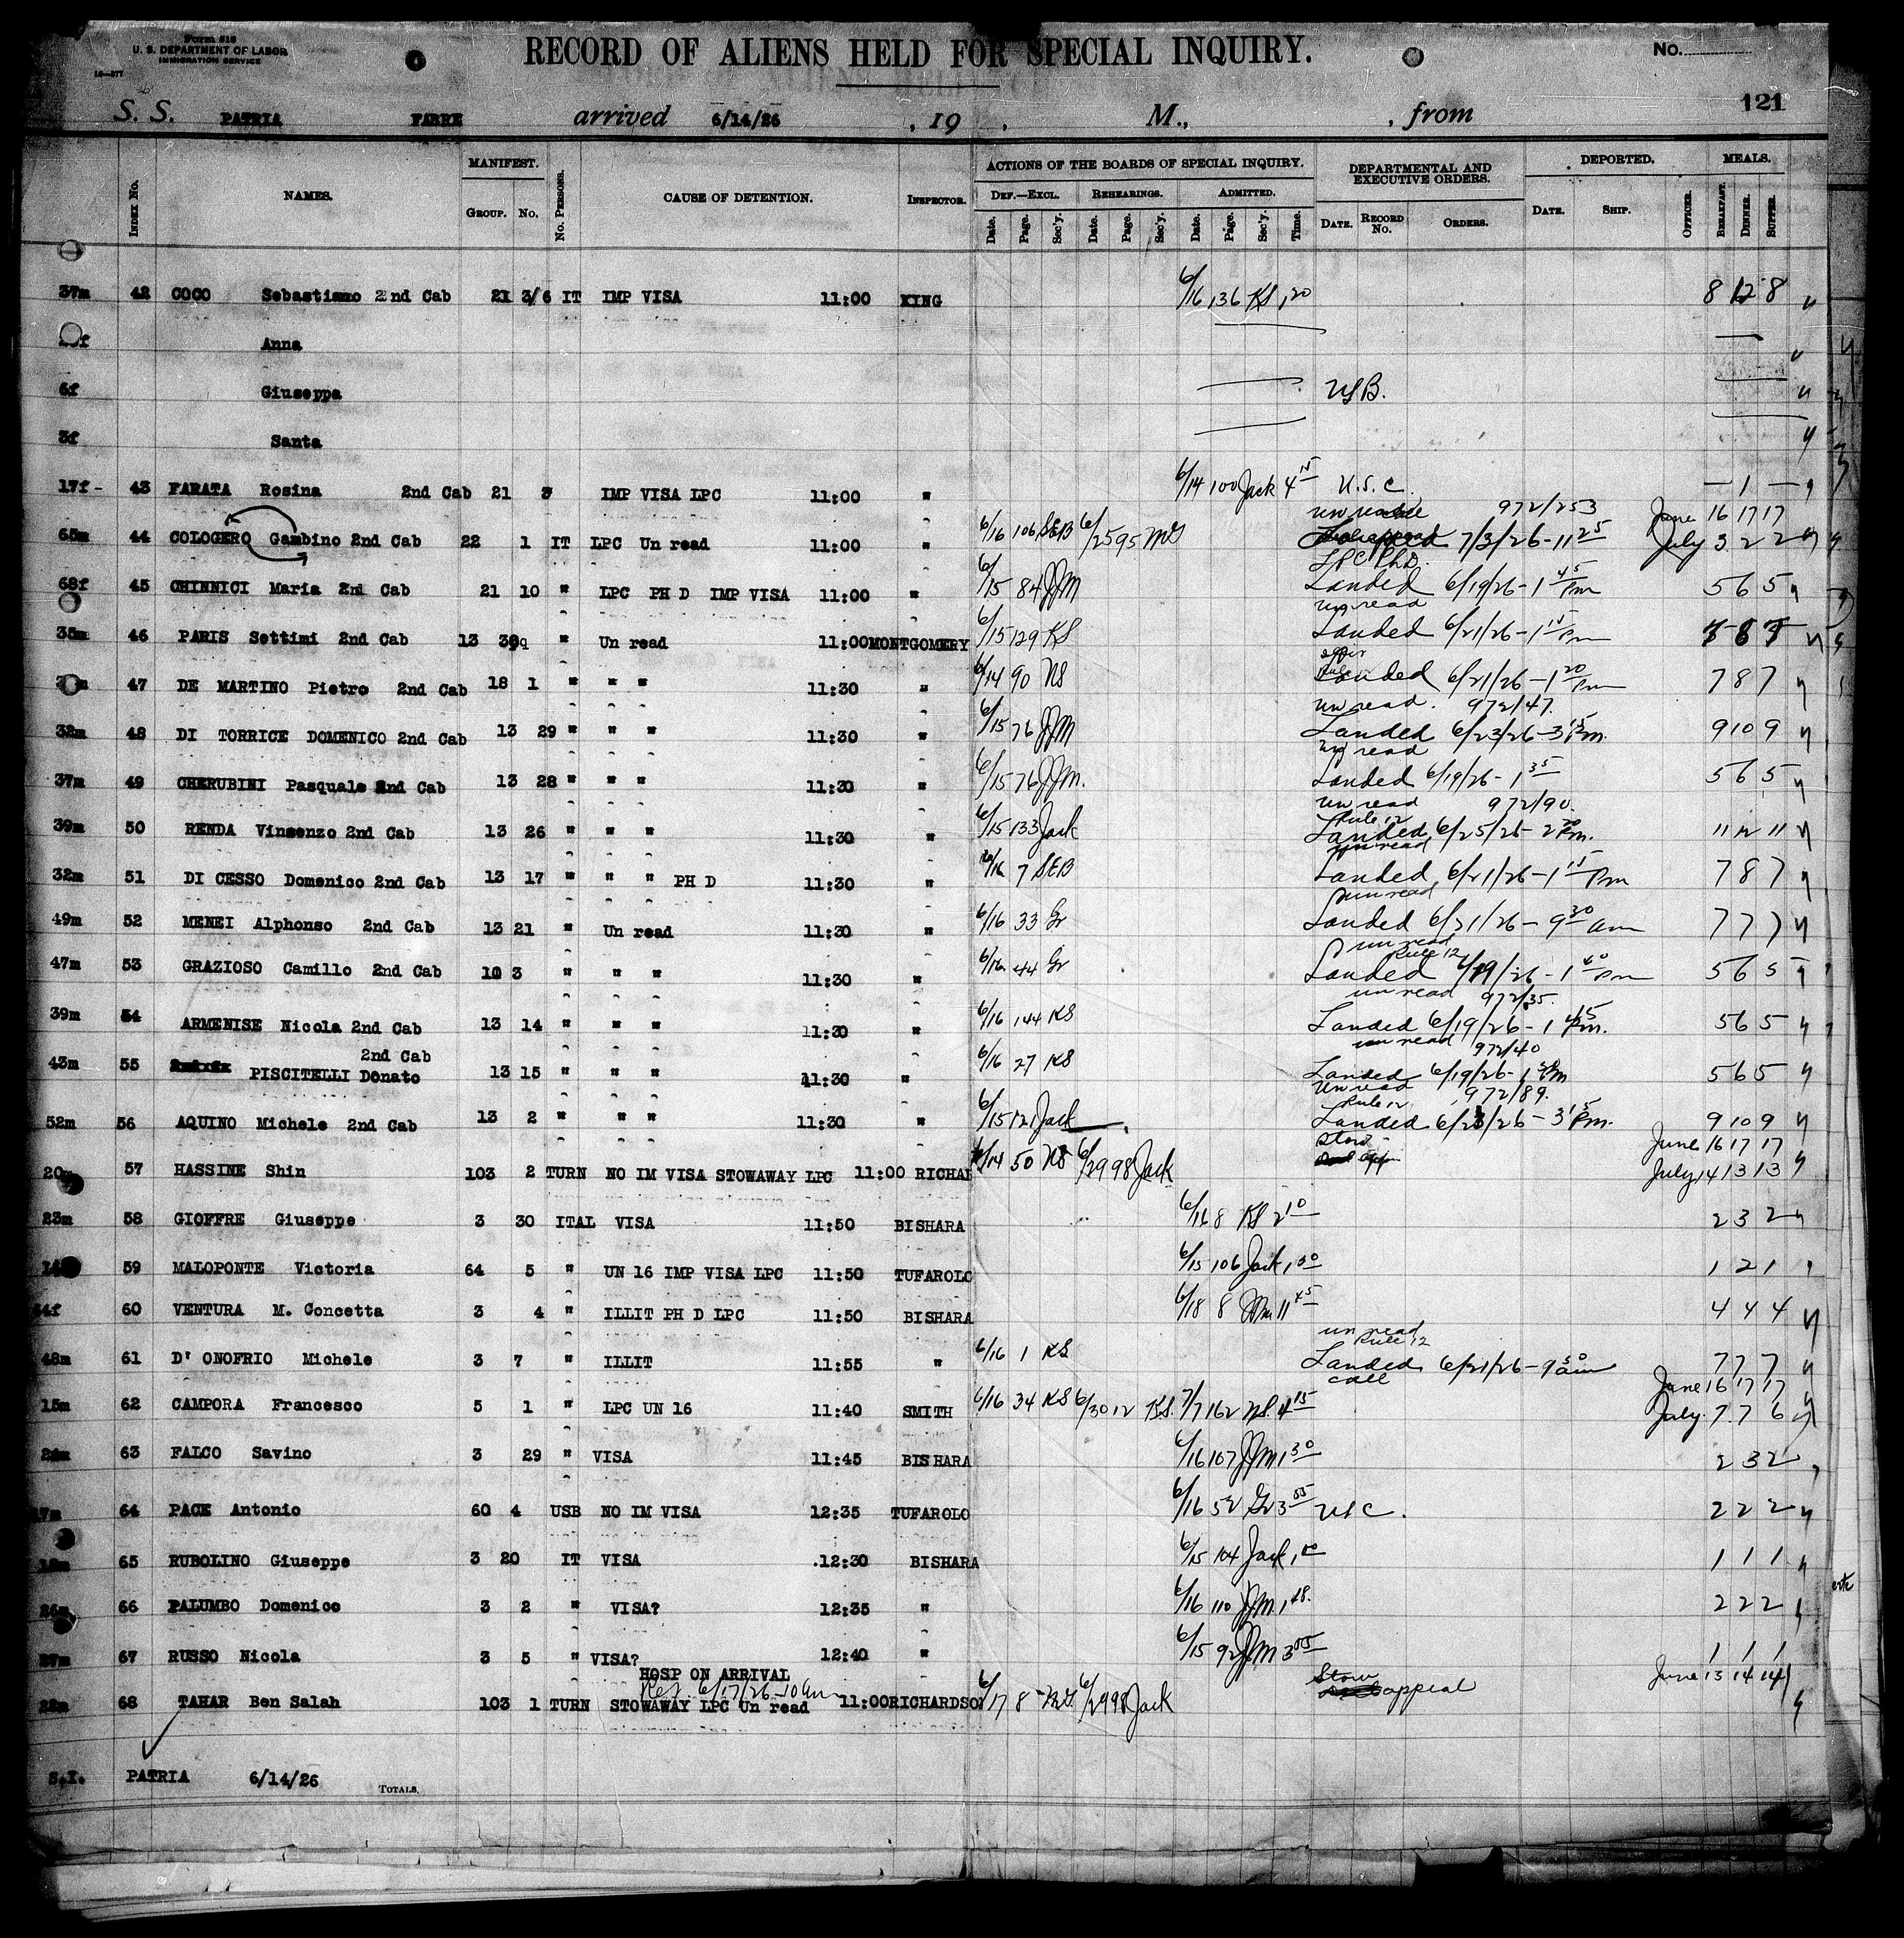 Form 518
U. S. DEPARTMENT OF LABOR
IMMIGRATION SERVICE
16—377
RECORD OF ALIENS HELD FOR SPECIAL INQUIRY.
No.
121
S. S. PATRIA FABRE arrived 6/14/26 , 19 , M., , from
INDEX No. NAMES. MANIFEST. GROUP. No. No. PERSONS. CAUSE OF DETENTION. INSPECTOR. ACTIONS OF THE BOARDS OF SPECIAL INQUIRY. DEF.—EXCL. Date. Page. Sec'y. REHEARINGS. Date. Page. Sec'y. ADMITTED. Date. Page. Sec'y. Time. DEPARTMENTAL AND EXECUTIVE ORDERS. DATE. RECORD No. ORDERS. DEPORTED. DATE. SHIP. OFFICER. MEALS. BREAKFAST. DINNER. SUPPER.
37m 42 COCO Sebastiano 2nd Cab 21 3/6 IT IMP VISA 11:00 KING 6/16 136 KS 1 20 8 12 8
Anna
6f Giuseppa USB.
3f Santa
17f - 43 FARATA Rosina 2nd Cab 21 IMP VISA LPC 11:00 " 6/14 100 Jack 4 15 U.S.C. — 1 —
un read 972/253 June 16 17 17
65m 44 COLOGERO Gambino 2nd Cab 22 1 IT LPC Un read 11:00 " 6/16 106 SEB 6/25 95 7/3/26 - 11 25 July 3 2 2
LPC PhD.
68f 45 CHINNICI Maria 2nd Cab 21 10 " LPC PH D IMP VISA 11:00 " 6/15 84 JJM Landed 6/19/26 - 1 45 Pm 5 6 5
un read
35m 46 PARIS Settimi 2nd Cab 13 " Un read 11:00 MONTGOMERY 6/15 129 KS Landed 6/21/26 - 1 15 Pm 7 8 7
47 DE MARTINO Pietro 2nd Cab 18 1 " " " 11:30 " 6/14 90 NS Landed 6/21/26 - 1 20 Pm 7 8 7
un read. 972/47.
32m 48 DI TORRICE DOMENICO 2nd Cab 13 29 " " " 11:30 " 6/15 76 JJM Landed 6/23/26 - 3 15 Pm. 9 10 9
un read
37m 49 CHERUBINI Pasquale 2nd Cab 13 28 " " " 11:30 " 6/15 76 JJM. Landed 6/19/26 - 1 35 5 6 5
un read 972/90.
Rule 12
39m 50 RENDA Vinsenzo 2nd Cab 13 26 " " " 11:30 " 6/15 133 Jack Landed 6/25/26 - 2 20 Pm. 11 12 11
un read
32m 51 DI CESSO Domenico 2nd Cab 13 17 " " " PH D 11:30 " 6/16 7 SEB Landed 6/21/26 - 1 15 Pm 7 8 7
un read
49m 52 MENEI Alphonso 2nd Cab 13 21 " Un read 11:30 " 6/16 33 Gr Landed 6/21/26 - 9 30 am 7 7 7
un read
Rule 12
47m 53 GRAZIOSO Camillo 2nd Cab 10 3 " " " 11:30 " 6/16 44 Gr Landed 6/19/26 - 1 40 Pm 5 6 5
un read 972/35
39m 54 ARMENISE Nicola 2nd Cab 13 14 " " " 11:30 " 6/16 144 KS Landed 6/19/26 - 1 45 Pm. 5 6 5
un read 972/40
2nd Cab
43m 55 PISCITELLI Donato 13 15 " " " 11:30 " 6/16 27 KS Landed 6/19/26 - 1 Pm 5 6 5
un read 972/89.
Rule 12
52m 56 AQUINO Michele 2nd Cab 13 2 " " " 11:30 " 6/15 121 Jack Landed 6/23/26 - 3 15 Pm. 9 10 9
Stow June 16 17 17
20m 57 HASSINE Shin 103 2 TURN NO IM VISA STOWAWAY LPC 11:00 RICHAR 6/14 50 NS 6/29 98 Jack July 14 13 13
23m 58 GIOFFRE Giuseppe 3 30 ITAL VISA 11:50 BISHARA 6/16 8 KS 2 10 2 3 2
59 MALOPONTE Victoria 64 5 " UN 16 IMP VISA LPC 11:50 TUFAROLO 6/15 106 Jack 1 00 1 2 1
60 VENTURA M. Concetta 3 4 " ILLIT PH D LPC 11:50 BISHARA 6/18 8 JJM 11 45 4 4 4
un read
Rule 12
48m 61 D' ONOFRIO Michele 3 7 " ILLIT 11:55 " 6/16 1 KS Landed 6/21/26 - 9 30 am 7 7 7
call June 16 17 17
15m 62 CAMPORA Francesco 5 1 " LPC UN 16 11:40 SMITH 6/16 34 KS 6/30 12 KS. 7/7 162 NS. 4 15 July 7 7 6
63 FALCO Savino 3 29 " VISA 11:45 BISHARA 6/16 107 JJM 1 30 2 3 2
64 PACE Antonio 60 4 USB NO IM VISA 12:35 TUFAROLO 6/16 52 Gr 3 55 USC. 2 2 2
65 RUBOLINO Giuseppe 3 20 IT VISA .12:30 BISHARA 6/15 104 Jack 1 1 1 1
66 PALUMBO Domenico 3 2 " VISA? 12:35 " 6/16 110 JJM. 1 48. 2 2 2
67 RUSSO Nicola 3 5 " VISA? 12:40 " 6/15 92 JJM 3 55 1 1 1
HOSP ON ARRIVAL Stow June 13 14 14
Rel 6/17/26 - 10 am
68 TAHAR Ben Salah 103 1 TURN STOWAWAY LPC Un read 11:00 RICHARDSO 6/17 8 6/29 98 Jack appeal
S.I. PATRIA 6/14/26
TOTALS.